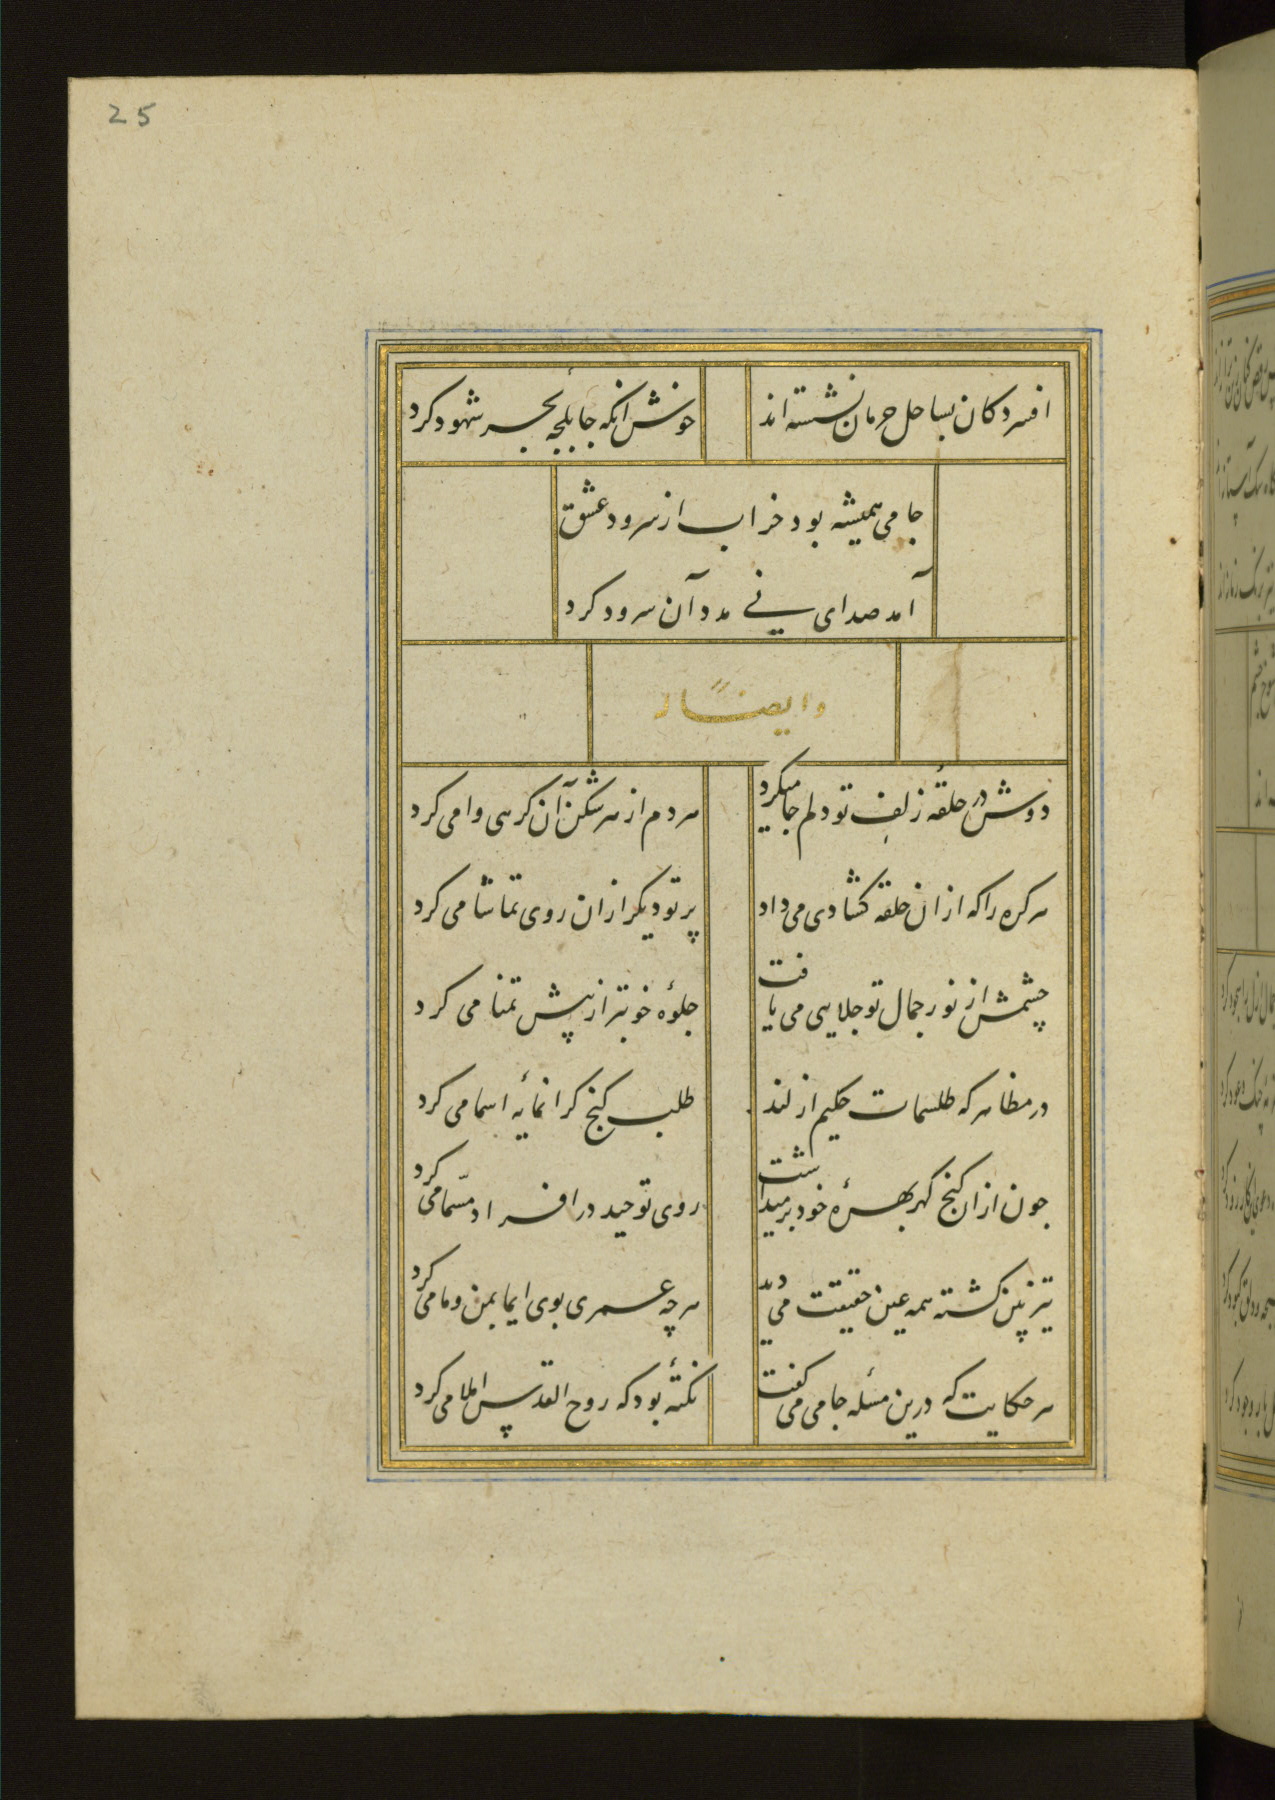 25
افسردکان بساحل حرمان نشسته اند
خوش انکه جا بلجهٔ بحر شهود کرد
جامی همیشه بود خراب از سرود عشق
آمد صدای نی مدد آن سرود کرد
وایضاً له
دوش در حلقهٔ زلف تو دلم جا میکرد
هر دم از هر شکن آن کرهی وا می کرد
هر کره را که ازان حلقه کشادی می داد
پرتو دیکر ازان روی تماشا می کرد
چشمش از نور جمال تو جلایی می یافت
جلوهٔ خوبتر از پیش تمنا می کرد
در مظاهر که طلسمات حکیم ازلند
طلب کنج کرانمایهٔ اسما می کرد
چون ازان کنج کهر بهرهٔ خود بر میداشت
روی توحید در افراد مسمّا می کرد
تیزبین کشته همه عین حقیقت می دید
هر چه عمری بوی ایما بمن و ما می کرد
هر حکایت که درین مسئله جامی می کفت
نکتهٔ بود که روح القدس املا می کرد